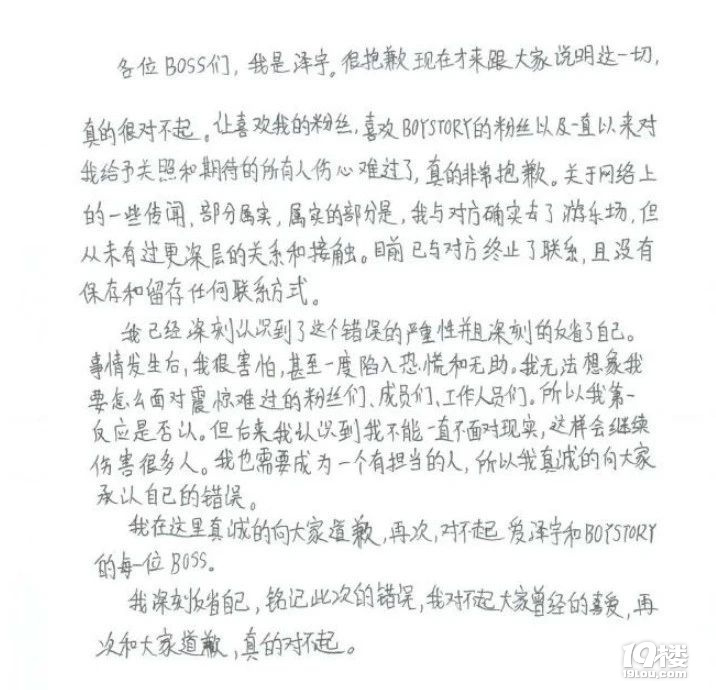 各位BOSS们，我是泽宇。很抱歉现在才来跟大家说明这一切，
真的很对不起。让喜欢我的粉丝，喜欢BOYSTORY的粉丝以及一直以来对
我给予关照和期待的所有人伤心难过了，真的非常抱歉。关于网络上
的一些传闻，部分属实，属实的部分是，我与对方确实去了游乐场，但
从未有过更深层的关系和接触。目前已与对方终止了联系，且没有
保存和留存任何联系方式。
我已经深刻认识到了这个错误的严重性并且深刻的反省了自己。
事情发生后，我很害怕，甚至一度陷入恐慌和无助。我无法想象我
要怎么面对震惊难过的粉丝们、成员们、工作人员们。所以我第一
反应是否认。但后来我认识到我不能一直不面对现实，这样会继续
伤害很多人。我也需要成为一个有担当的人，所以我真诚的向大家
承认自己的错误。
我在这里真诚的向大家道歉，再次，对不起 爱泽宇和BOYSTORY
的每一位BOSS。
我深刻反省自己，铭记此次的错误，我对不起大家曾经的喜爱，再
次和大家道歉，真的对不起。
19楼
19lou.com